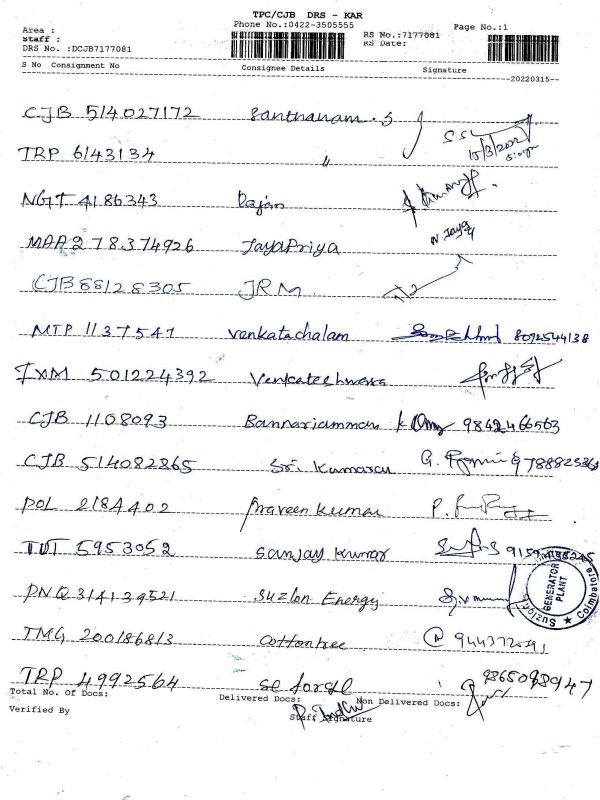 TPC/CJB DRS - KAR
Phone No.:0422-3505555
Page No.:1
Area :
Staff :
RS No.:7177081
RS Date:
DRS No. :DCJB7177081
S No Consignment No Consignee Details Signature
20220315
CJB 514027172 Santhanam . S S.S 15/3/2022
TRP 6143134 "
NGT 4186343 Rajan
MAA 278374926 JayaPriya N. Jaya
CJB 88128305 JRM
MTP 1137547 Venkatachalam 8092544138
IXM 501224392 Venkateshwara
CJB 1108093 Bannariamman 9842466563
CJB 514082865 Sri Kumaran G.
POL 2184402 Praveen Kumar P.
TUT 5953052 Sanjay Kumar
PNQ 314139521 Suzlon Energy
GENERATOR PLANT
Suzlon
Coimbatore
TMG 200186813 Cottontree
TRP 4992564 9865098947
Total No. Of Docs: Delivered Docs: Non Delivered Docs:
Verified By Staff Signature